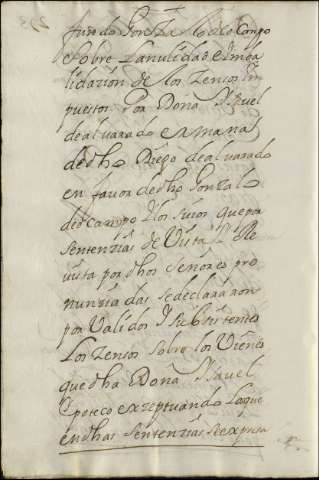 fundo Gonzalo del Campo
sobre la nulidad e Imba
lidazion de los zensos im
puestos Por Doña Ysavel
de alvarado ermana
de dho Diego de alvarado
en favor de dho Gonzalo
del Campo Y los suios que por
sentenzias de Vista Y Re
vista por dhos señores pro
nunziadas se declararon
por Validos Y subsistentes
Los zensos sobre los Vienes
que dha Doña Ysavel
Ypoteco exzeptuando Lo que
en dhas sentenzias se expresa